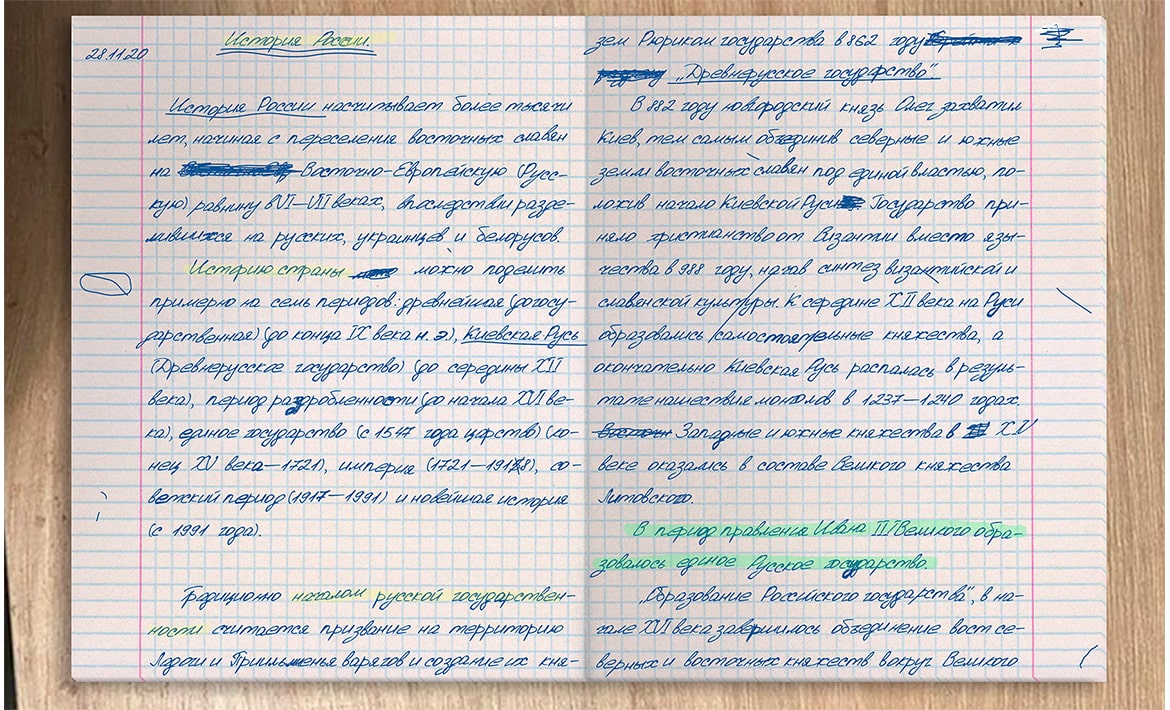 История России.
28.11.20
История России насчитывает более тысячи
лет, начиная с переселения восточных славян
на Восточно-Европейскую (Русс-
кую) равнину в VI–VII веках, впоследствии разде-
лившихся на русских, украинцев и белорусов.
Историю страны можно поделить
примерно на семь периодов: древнейшая (догосу-
дарственная) (до конца IX века н. э.), Киевская Русь
(Древнерусское государство) (до середины XII
века), период раздробленности (до начала XVI ве-
ка), единое государство (с 1547 года царство) (ко-
нец XV века–1721), империя (1721–1918), со-
ветский период (1917–1991) и новейшая история
(с 1991 года).
Традиционно началом русской государствен-
ности считается призвание на территорию
Ладоги и Приильменья варягов и создание их кня-
зем Рюриком государства в 862 году
„Древнерусское государство".
В 882 году новгородский князь Олег захватил
Киев, тем самым объединив северные и южные
земли восточных славян под единой властью, по-
ложив начало Киевской Руси Государство при-
няло христианство от Византии вместо язы-
чества в 988 году, начав синтез византийской и
славянской культуры. К середине XII века на Руси
образовались самостоятельные княжества, а
окончательно Киевская Русь распалась в резуль-
тате нашествия монголов в 1237–1240 годах.
Западные и южные княжества в XIV
веке оказались в составе Великого княжества
Литовского.
В период правления Ивана III Великого обра-
зовалось единое Русское государство.
„Образование Российского государства", в на-
чале XVI века завершилось объединение вост се-
верных и восточных княжеств вокруг Великого